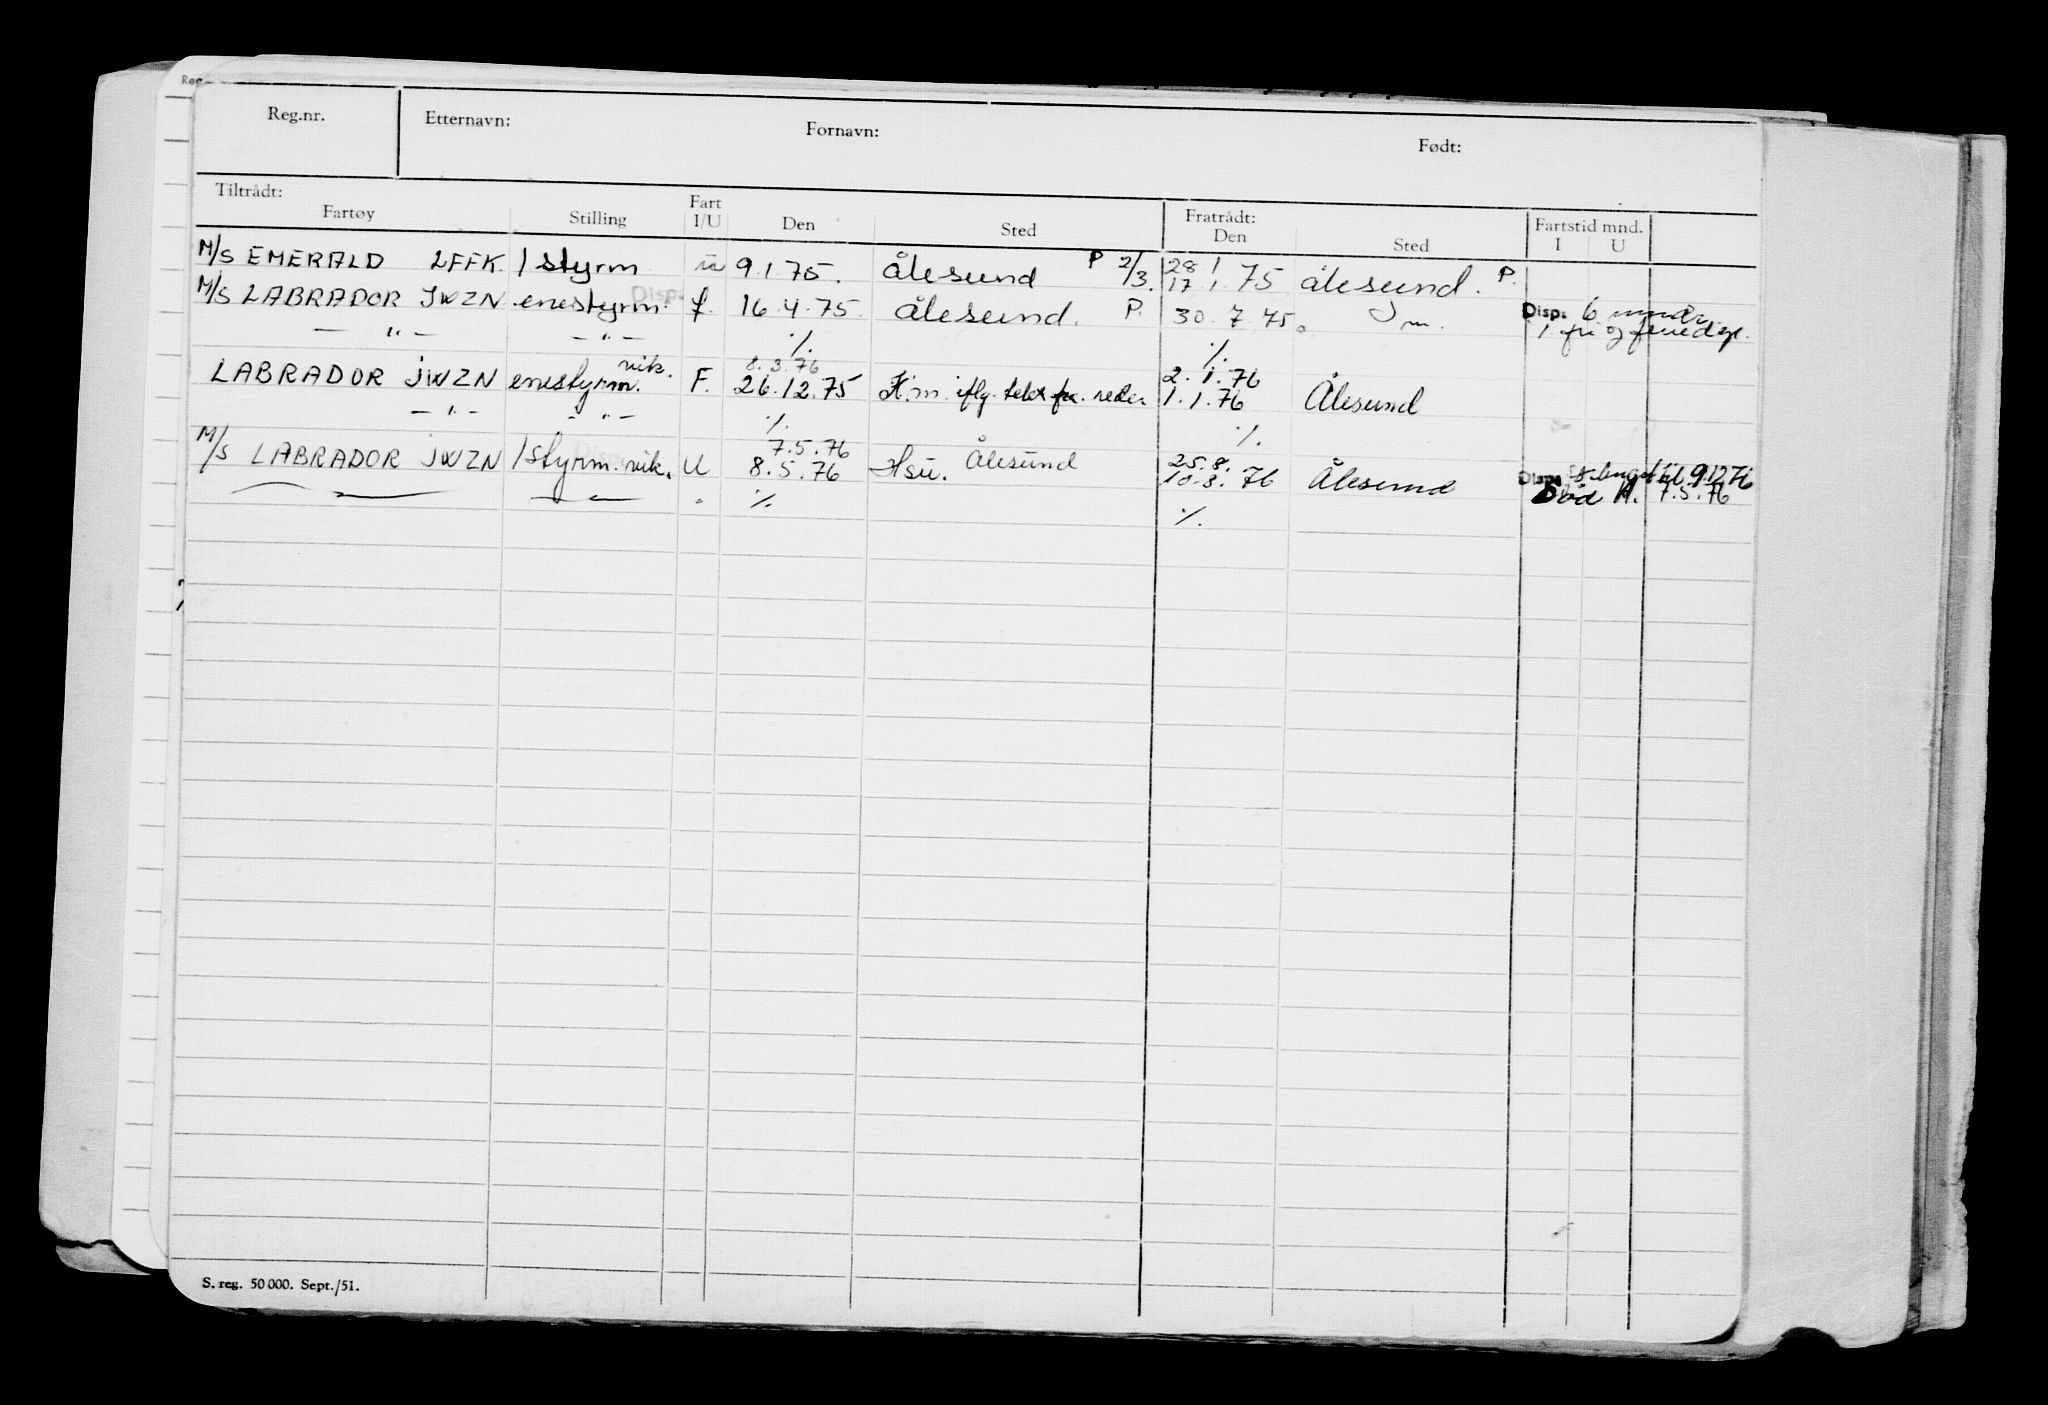 Reg.nr. Etternavn: Fornavn: Født:
Tiltrådt: Fratrådt: Fartstid mnd.
Fartøy Stilling Fart I/U Den Sted Den Sted I U
M/S EMERALD LFFK. 1 styrm u 9.1.75. Ålesund P 2/3. 28 1
17.1.75 Ålesund. P.
M/S LABRADOR JWZN enestyrm. Disp. f. 16.4.75. Ålesund. P. 30.7.75. Disp. 6 mndr
— " — — " — ·/. ·/. 1 fri og
vik. 8.3.76 2.1.76
LABRADOR JWZN enestyrm. F. 26.12.75 H.m. iflg. telex fra reder 1.1.76 Ålesund
— " — — " — ·/. ·/.
7.5.76 Ålesund 25.8.
M/S LABRADOR JWZN 1 styrm. vik. U 8.5.76 Hsu. 10.8.76 Ålesund Disp. til 9.12.76
— " — — " — " ·/. ·/. 7.5.76
S. reg. 50 000. Sept./51.